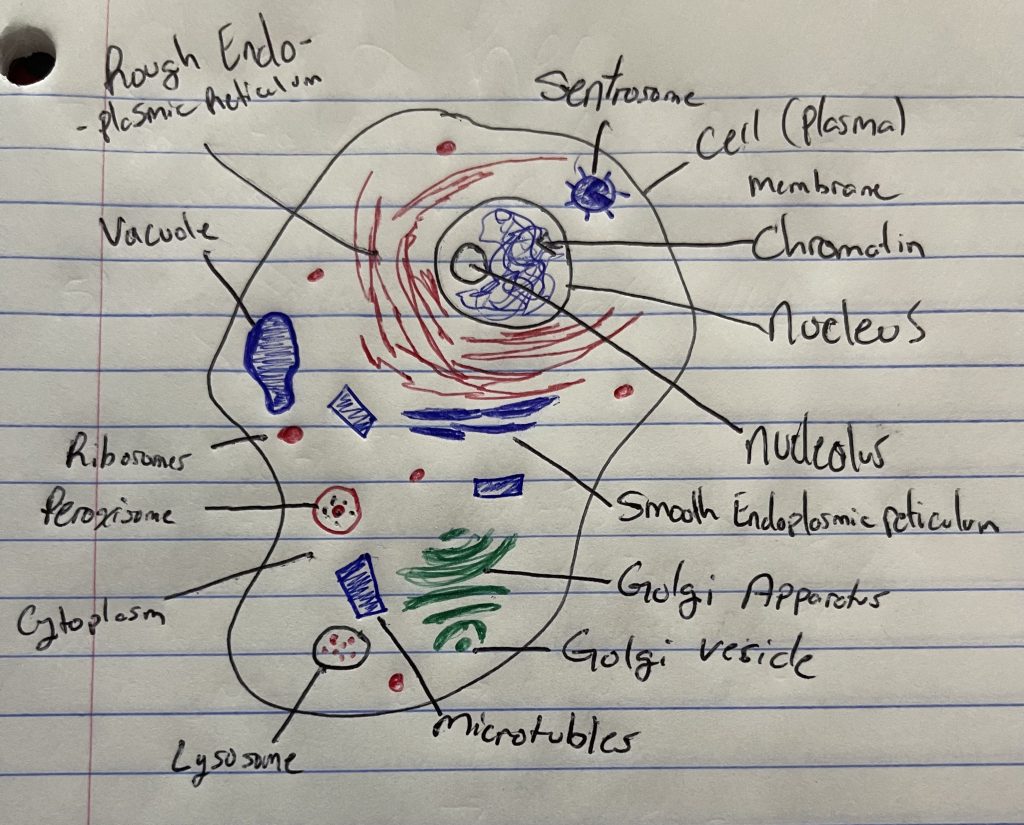 Rough Endo-
-plasmic Reticulum
Sentrosome
Cell (plasma)
membrane
Vacuole
Chromatin
Nucleus
Nucleolus
Ribosomes
Peroxisome
Smooth Endoplasmic reticulum
Cytoplasm
Golgi Apparatus
Golgi vesicle
Microtubles
Lysosome